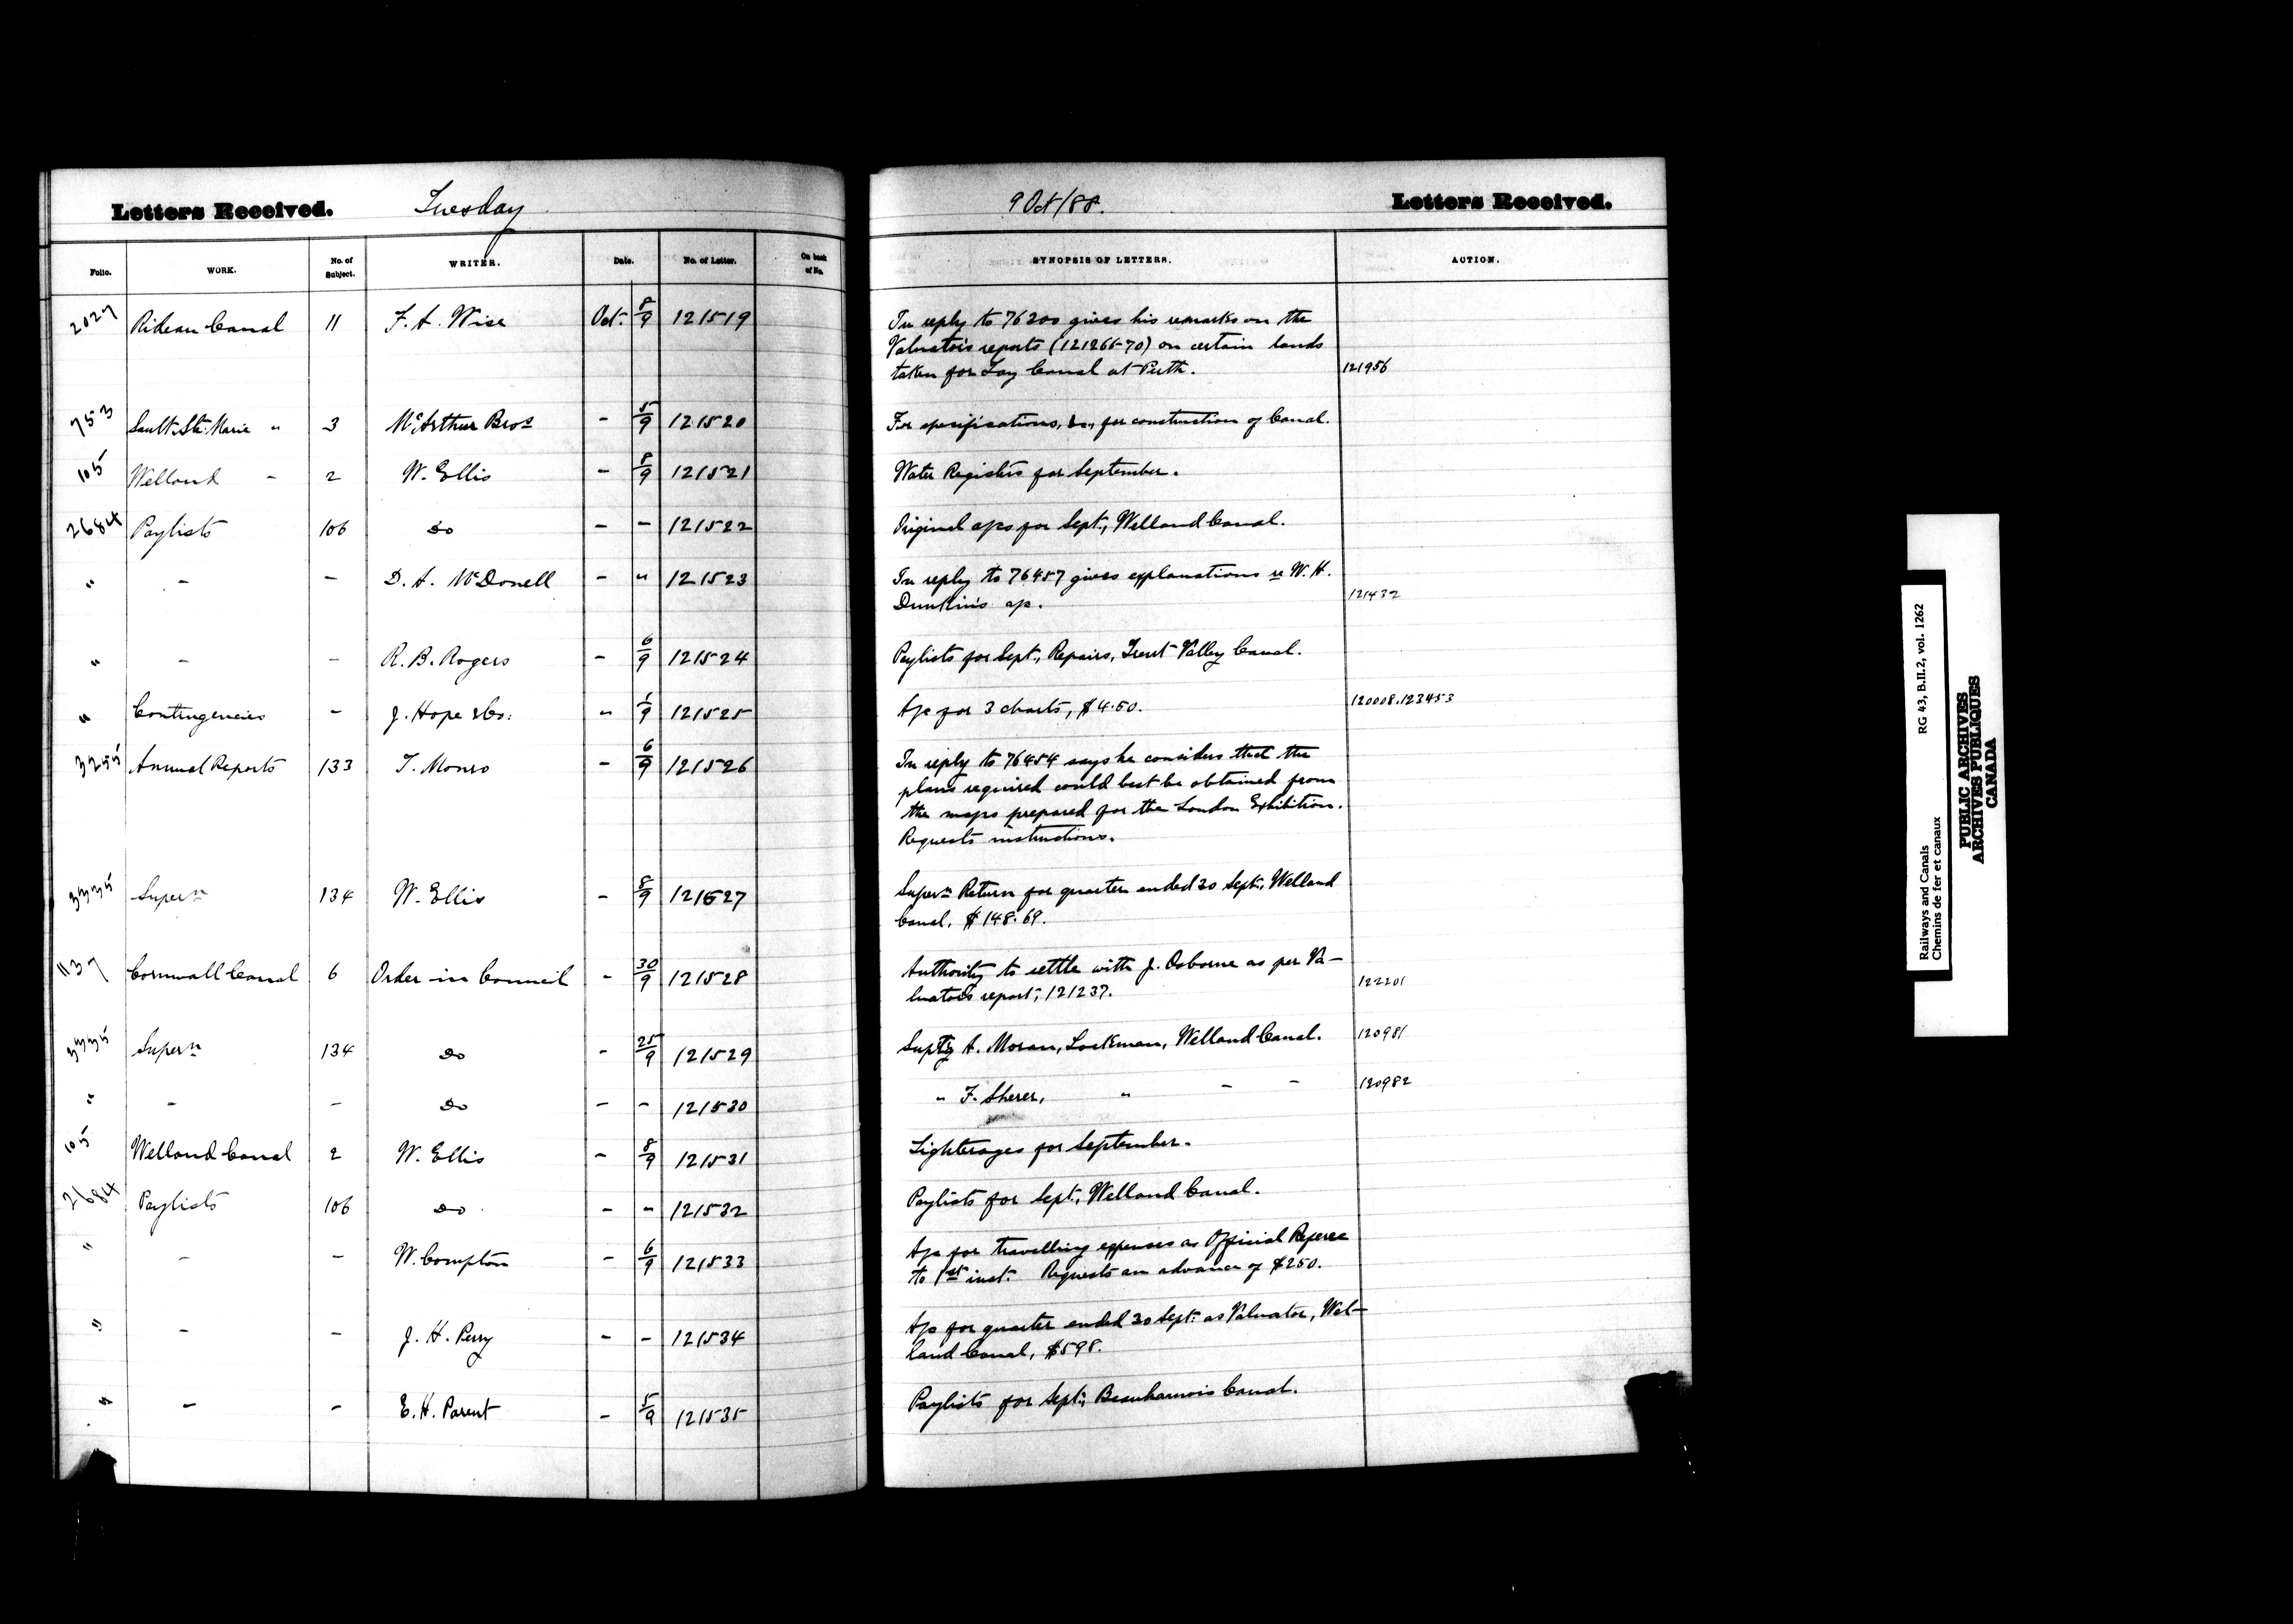 Letters Received. Tuesday 9 Oct/88. Letters Received.
Folio. WORK. No. of Subject. WRITER. Date. No. of Letter. On back of No. SYNOPSIS OF LETTERS. ACTION.
2027 Rideau Canal 11 F. A. Wise Oct. 8/9 121519 In reply to 76200 gives his remarks on the
Valuator's reports (121266-70) on certain lands
taken for Tay Canal at Perth. 121956
753 Sault Ste. Marie " 3 McArthur Bros - 5/9 121520 For specifications, &c., for construction of Canal.
105 Welland - 2 W. Ellis - 8/9 121521 Water Registers for September.
2684 Paylists 106 Do - - 121522 Original a/cs for Sept., Welland Canal.
" - - D. A. McDonell - " 121523 In reply to 76457 gives explanations re W. H.
Dunkin's a/c. 121432
" - - R. B. Rogers - 6/9 121524 Paylists for Sept., Repairs, Trent Valley Canal.
" Contingencies - J. Hope & Co: " 1/9 121525 A/c for 3 charts, $4.50. 120008.123453
3255 Annual Reports 133 T. Monro - 6/9 121526 In reply to 76454 says he considers that the
plans required could best be obtained from
the maps prepared for the London Exhibition.
Requests instructions.
3335 Supern 134 W. Ellis - 8/9 121527 Supern Return for quarter ended 30 Sept., Welland
Canal, $148.69.
1137 Cornwall Canal 6 Order in Council - 30/9 121528 Authority to settle with J. Osborne as per Va-
luator's report, 121237. 122201
3335 Supern 134 Do - 25/9 121529 Suptg A. Moran, Lockman, Welland Canal. 120981
" - - Do - - 121530 " F. Sherer, " - - 120982
105 Welland Canal 2 W. Ellis - 8/9 121531 Lighterages for September.
2684 Paylists 106 Do - " 121532 Paylists for Sept., Welland Canal.
" - - W. Compton - 6/9 121533 A/c for travelling expenses as Official Referee
to 1st inst. Requests an advance of $250.
" - - J. H. Perry - - 121534 A/c for quarter ended 30 Sept. as Valuator, Wel-
land Canal, $598.
" - - E. H. Parent - 5/9 121535 Paylists for Sept., Beauharnois Canal.
Railways and Canals RG 43, B.II.2, vol. 1262
Chemins de fer et canaux
PUBLIC ARCHIVES
ARCHIVES PUBLIQUES
CANADA